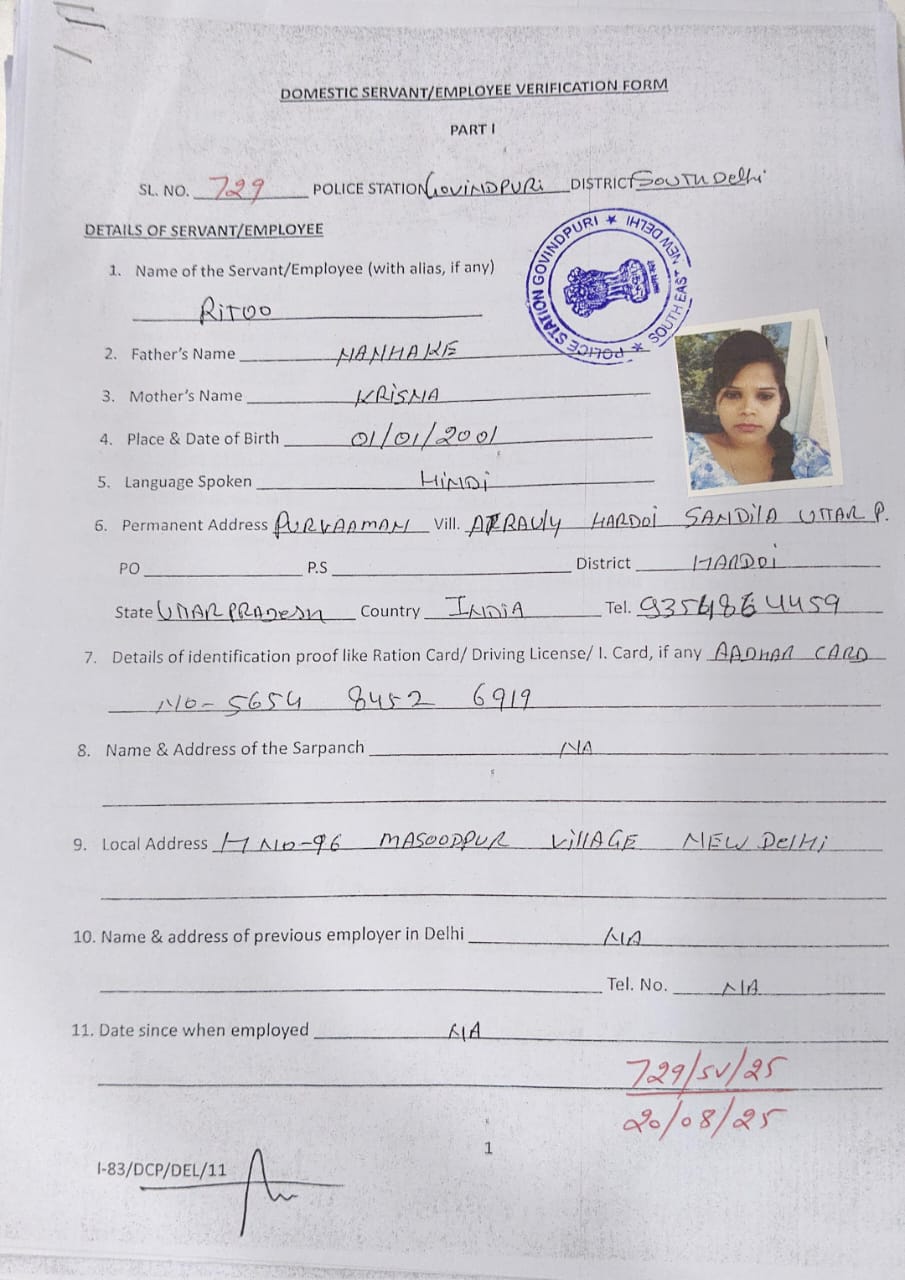 DOMESTIC SERVANT/EMPLOYEE VERIFICATION FORM
PART I
SL. NO. 729 POLICE STATION GOVINDPURI DISTRICT SOUTH Delhi
POLICE STATION GOVINDPURI ★ NEW DELHI SOUTH EAST ★
DETAILS OF SERVANT/EMPLOYEE
1. Name of the Servant/Employee (with alias, if any)
RITOO
2. Father's Name NANHAKE
3. Mother's Name KRISNA
4. Place & Date of Birth 01/01/2001
5. Language Spoken HINDI
6. Permanent Address PURVAAMAN Vill. ATRAULY HARDOI SANDILA UTTAR P.
PO P.S District HARDOI
State UTTAR PRADESH Country INDIA Tel. 9354864459
7. Details of identification proof like Ration Card/ Driving License/ I. Card, if any AADHAR CARD
NO- 5654 8452 6919
8. Name & Address of the Sarpanch NA
9. Local Address H NO-96 MASOODPUR VILLAGE NEW DELHI
10. Name & address of previous employer in Delhi NA
Tel. No. NA
11. Date since when employed NA
729/SV/25
20/08/25
1
I-83/DCP/DEL/11